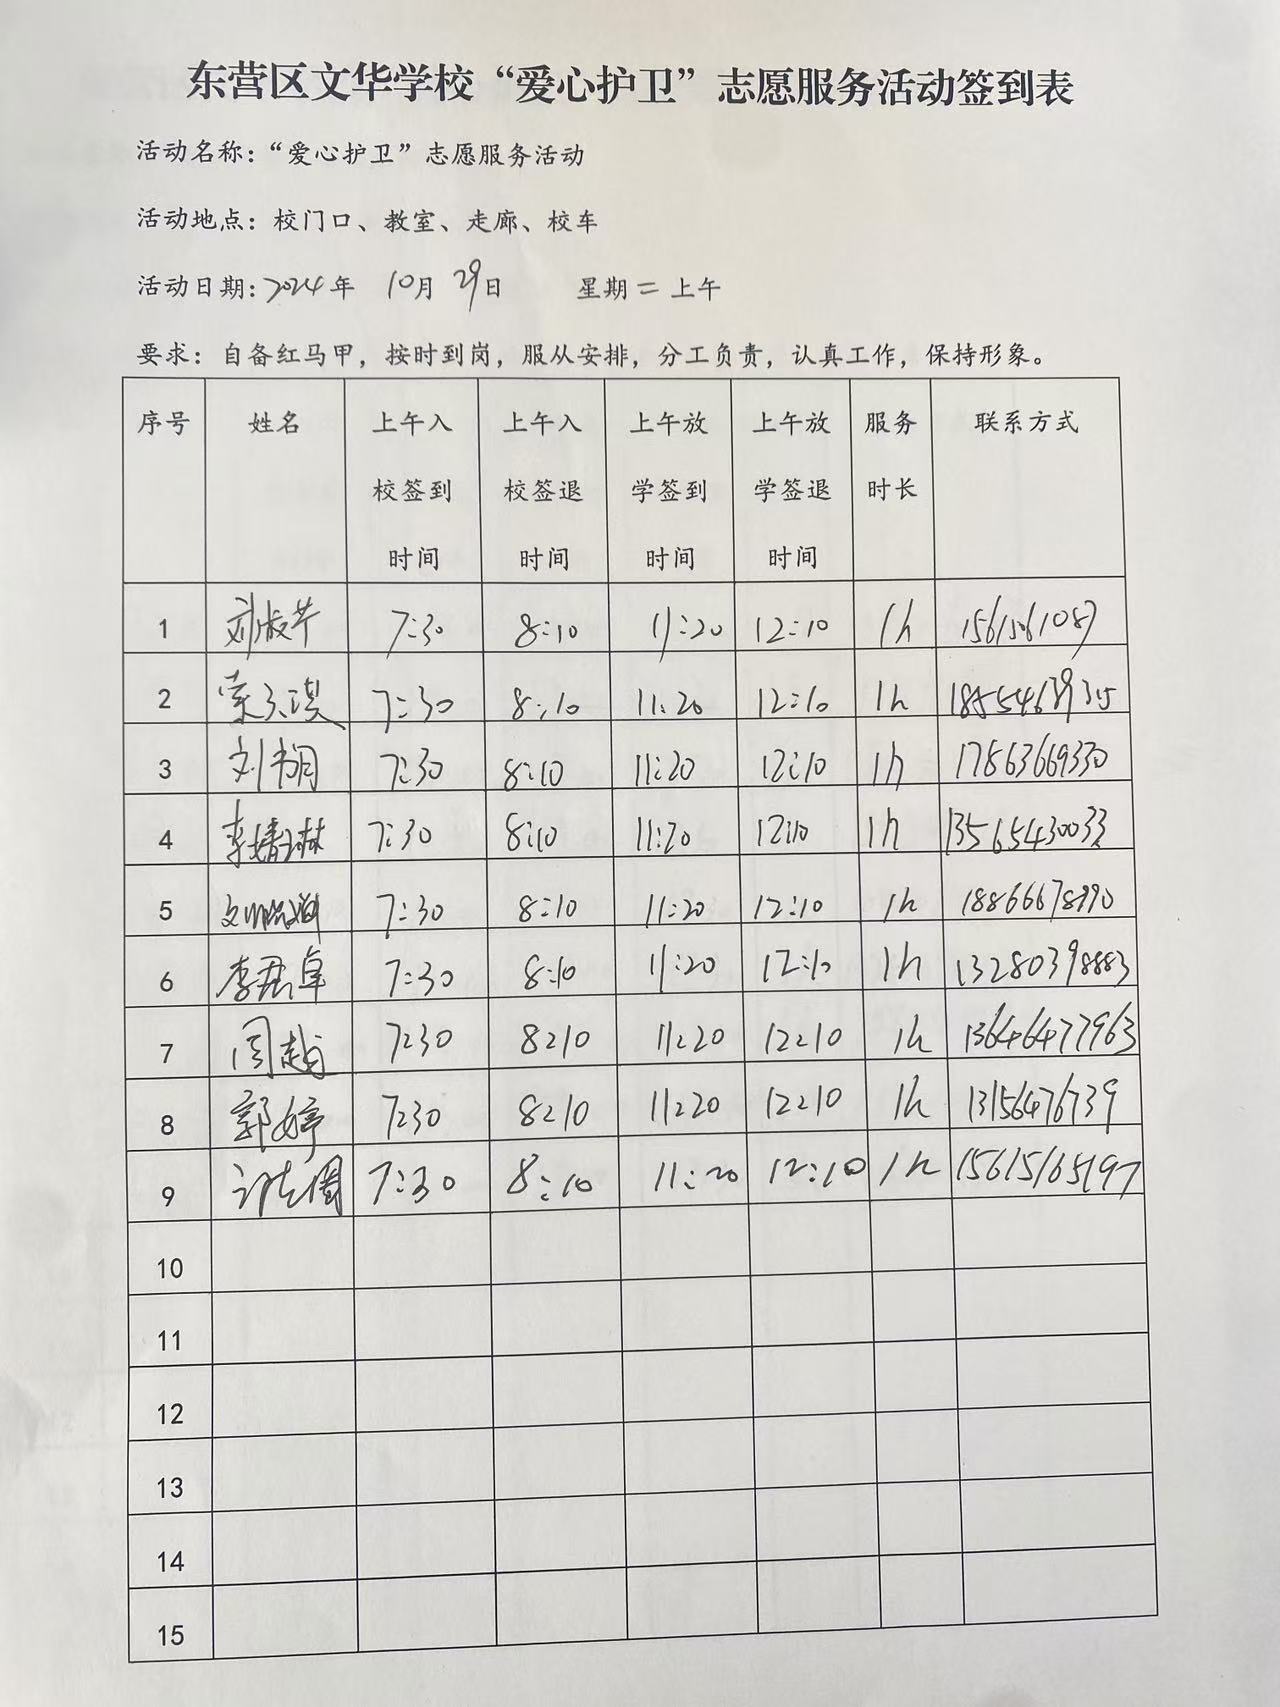 东营区文华学校“爱心护卫”志愿服务活动签到表
活动名称：“爱心护卫”志愿服务活动
活动地点：校门口、教室、走廊、校车
活动日期：2024年 10月 29日 星期二 上午
要求：自备红马甲，按时到岗，服从安排，分工负责，认真工作，保持形象。
序号 姓名 上午入校签到时间 上午入校签退时间 上午放学签到时间 上午放学签退时间 服务时长 联系方式
1 刘淑芹 7:30 8:10 11:20 12:10 1h
2 7:30 8:10 11:20 12:10 1h
3 7:30 8:10 11:20 12:10 1h 17863669330
4 李婧琳 7:30 8:10 11:20 12:10 1h 13565430033
5 7:30 8:10 11:20 12:10 1h
6 李君卓 7:30 8:10 11:20 12:10 1h 13280398883
7 周越 7:30 8:10 11:20 12:10 1h 13646477963
8 郭婷 7:30 8:10 11:20 12:10 1h 13156476739
9 7:30 8:10 11:20 12:10 1h 15615165197
10
11
12
13
14
15